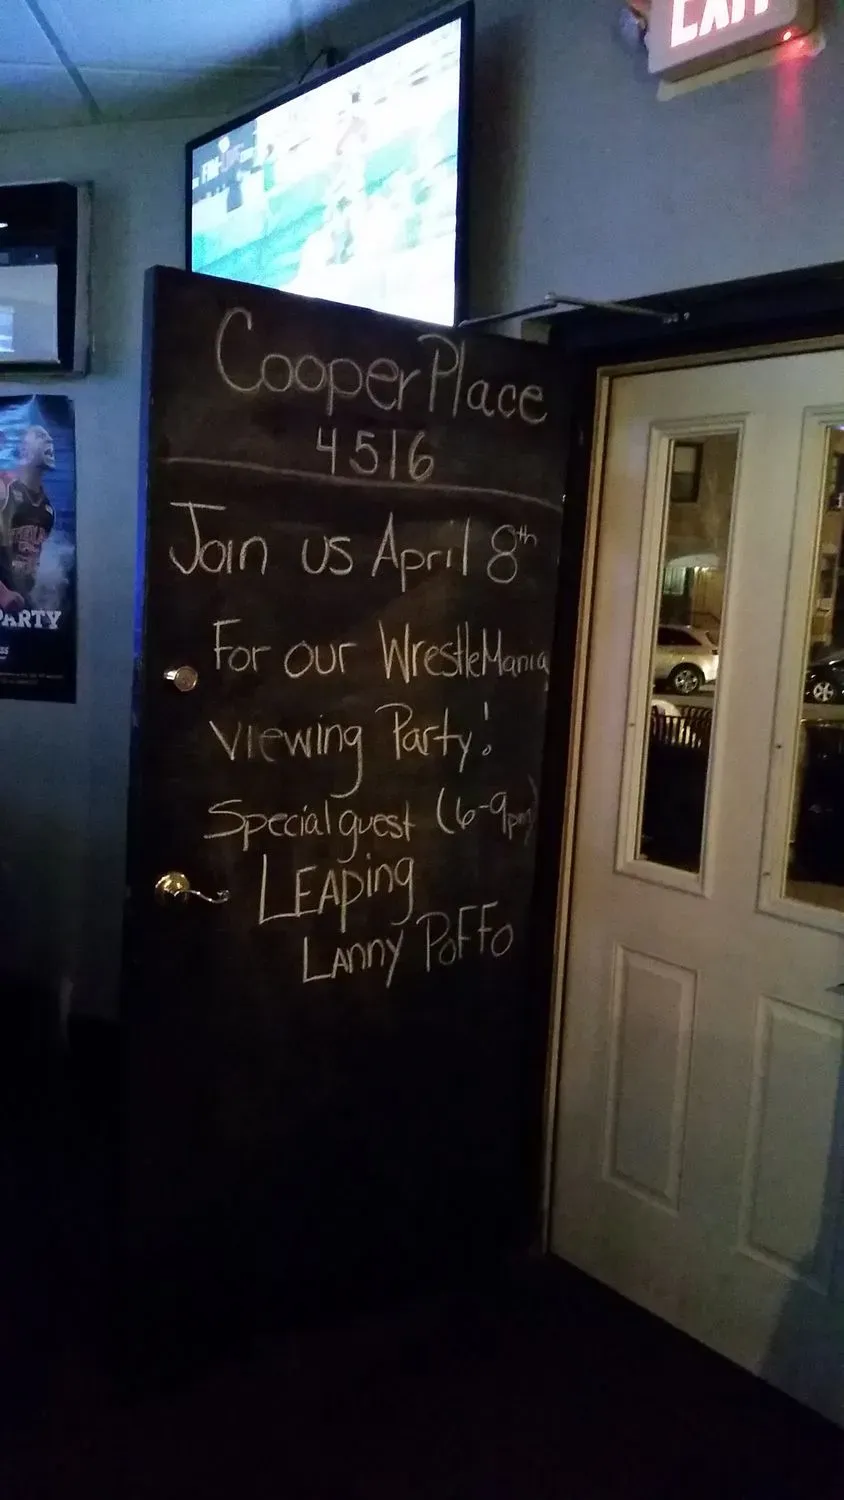 EXIT
Cooper Place
4516
Join us April 8th
For our WrestleMania
Viewing Party!
Special guest (6-9pm)
LEAping
LANNY PoFFo
PARTY